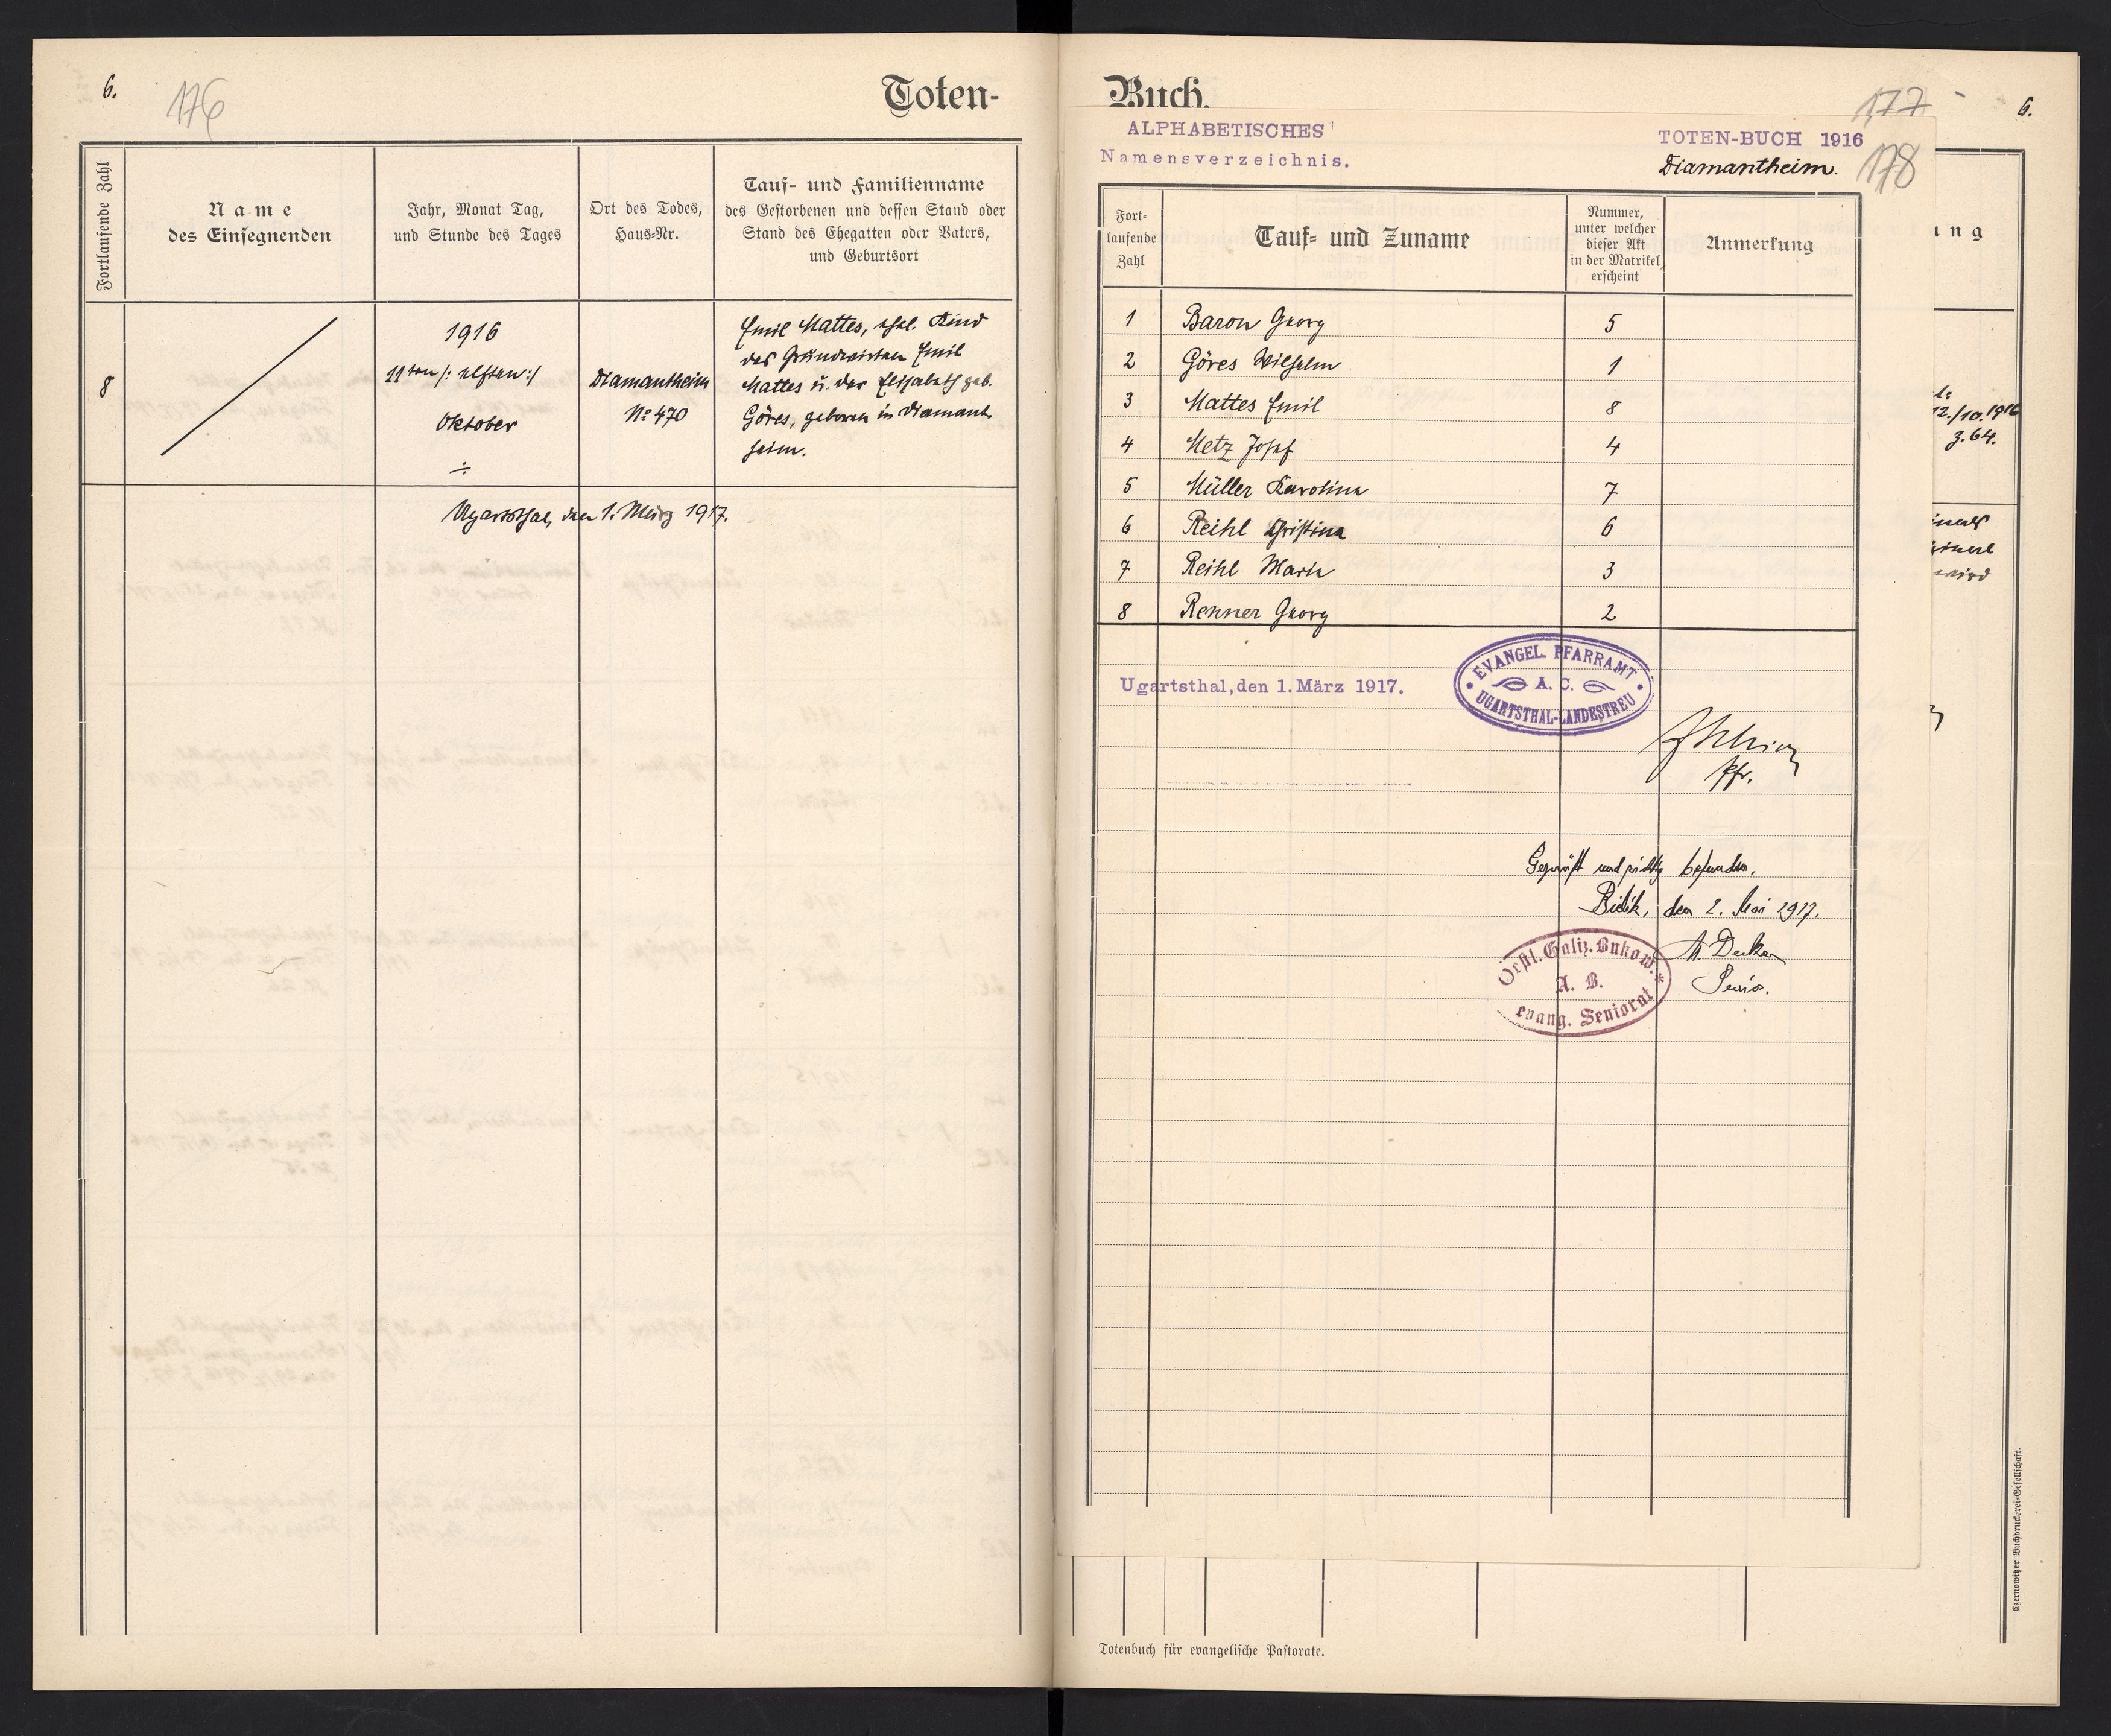 6.
176
Toten-
Fortlaufende Zahl
Name
des Einsegnenden
Jahr, Monat Tag,
und Stunde des Tages
Ort des Todes,
Haus-Nr.
Tauf- und Familienname
des Gestorbenen und dessen Stand oder
Stand des Ehegatten oder Vaters,
und Geburtsort
8
1916
11ten /: elften :/
Oktober
÷
Diamantheim
No 470
Emil Mattes, ehel. Kind
des Grundwirten Emil
Mattes u. der Elisabeth geb.
Göres, geboren in Diamant
heim.
Ugartsthal, den 1. März 1917.
Buch.
177
6.
ALPHABETISCHES
Namensverzeichnis.
TOTEN-BUCH 1916
Diamantheim.
178
Fort-
laufende
Zahl
Tauf- und Zuname
Nummer,
unter welcher
dieser Akt
in der Matrikel
erscheint
Anmerkung
ng
1 Baron Georg 5
2 Göres Wilhelm 1
3 Mattes Emil 8
4 Metz Josef 4
5 Müller Karolina 7
6 Reihl Christina 6
7 Reihl Maria 3
8 Renner Georg 2
12./10.1916
Z.64.
wird
Ugartsthal, den 1. März 1917.
EVANGEL. PFARRAMT
A. C.
UGARTSTHAL-LANDESTREU
Pfr.
Geprüft und richtig befunden.
den 2. Mai 1917.
Oestl. Galiz. Bukow.
A. B.
evang. Seniorat
Senior.
Totenbuch für evangelische Pastorate.
Czernowitzer Buchdruckerei-Gesellschaft.